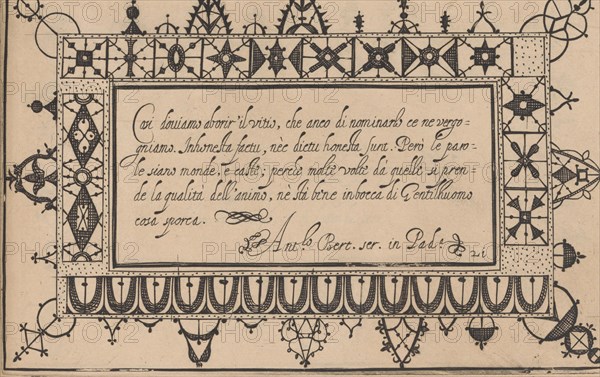 Cosi douiamo aborir' il vitio, che anco di nominarlo ce ne vergo=
gniamo. Inhonesta factu, nèc dictu honesta sunt. Però le paro=
le siano monde, e caste; perche molte volte da quelle si pren=
de la qualità dell'animo, nè stà bene in bocca di Gentilhuomo
cosa sporca.
Ant.º Bert. scr. in Pad.ª
21